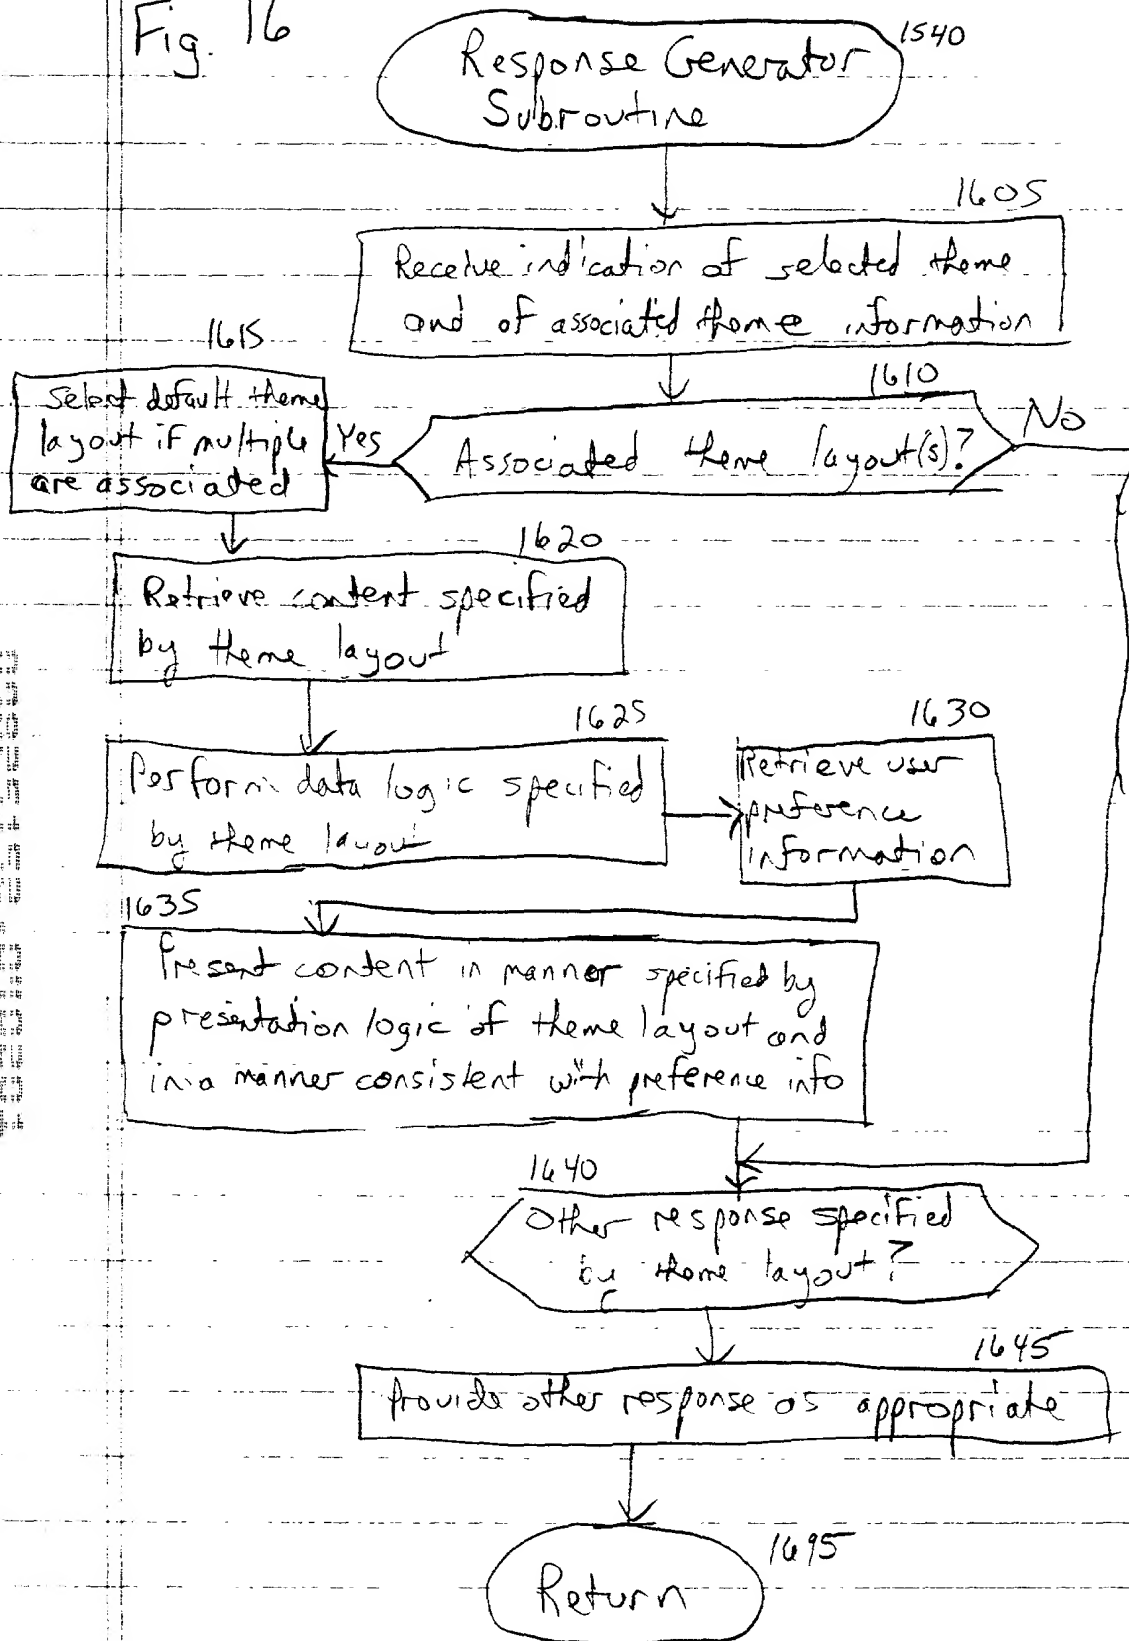 Fig. 16
Response Generator
Subroutine
1540
1605
Receive indication of selected theme
and of associated theme information
1610
Associated theme layout(s)?
Yes
No
1615
Select default theme
layout if multiple
are associated
1620
Retrieve content specified
by theme layout
1625
Perform data logic specified
by theme layout
1630
Retrieve user
preference
information
1635
Present content in manner specified by
presentation logic of theme layout and
in a manner consistent with preference info
1640
Other response specified
by theme layout?
1645
Provide other response as appropriate
Return
1695